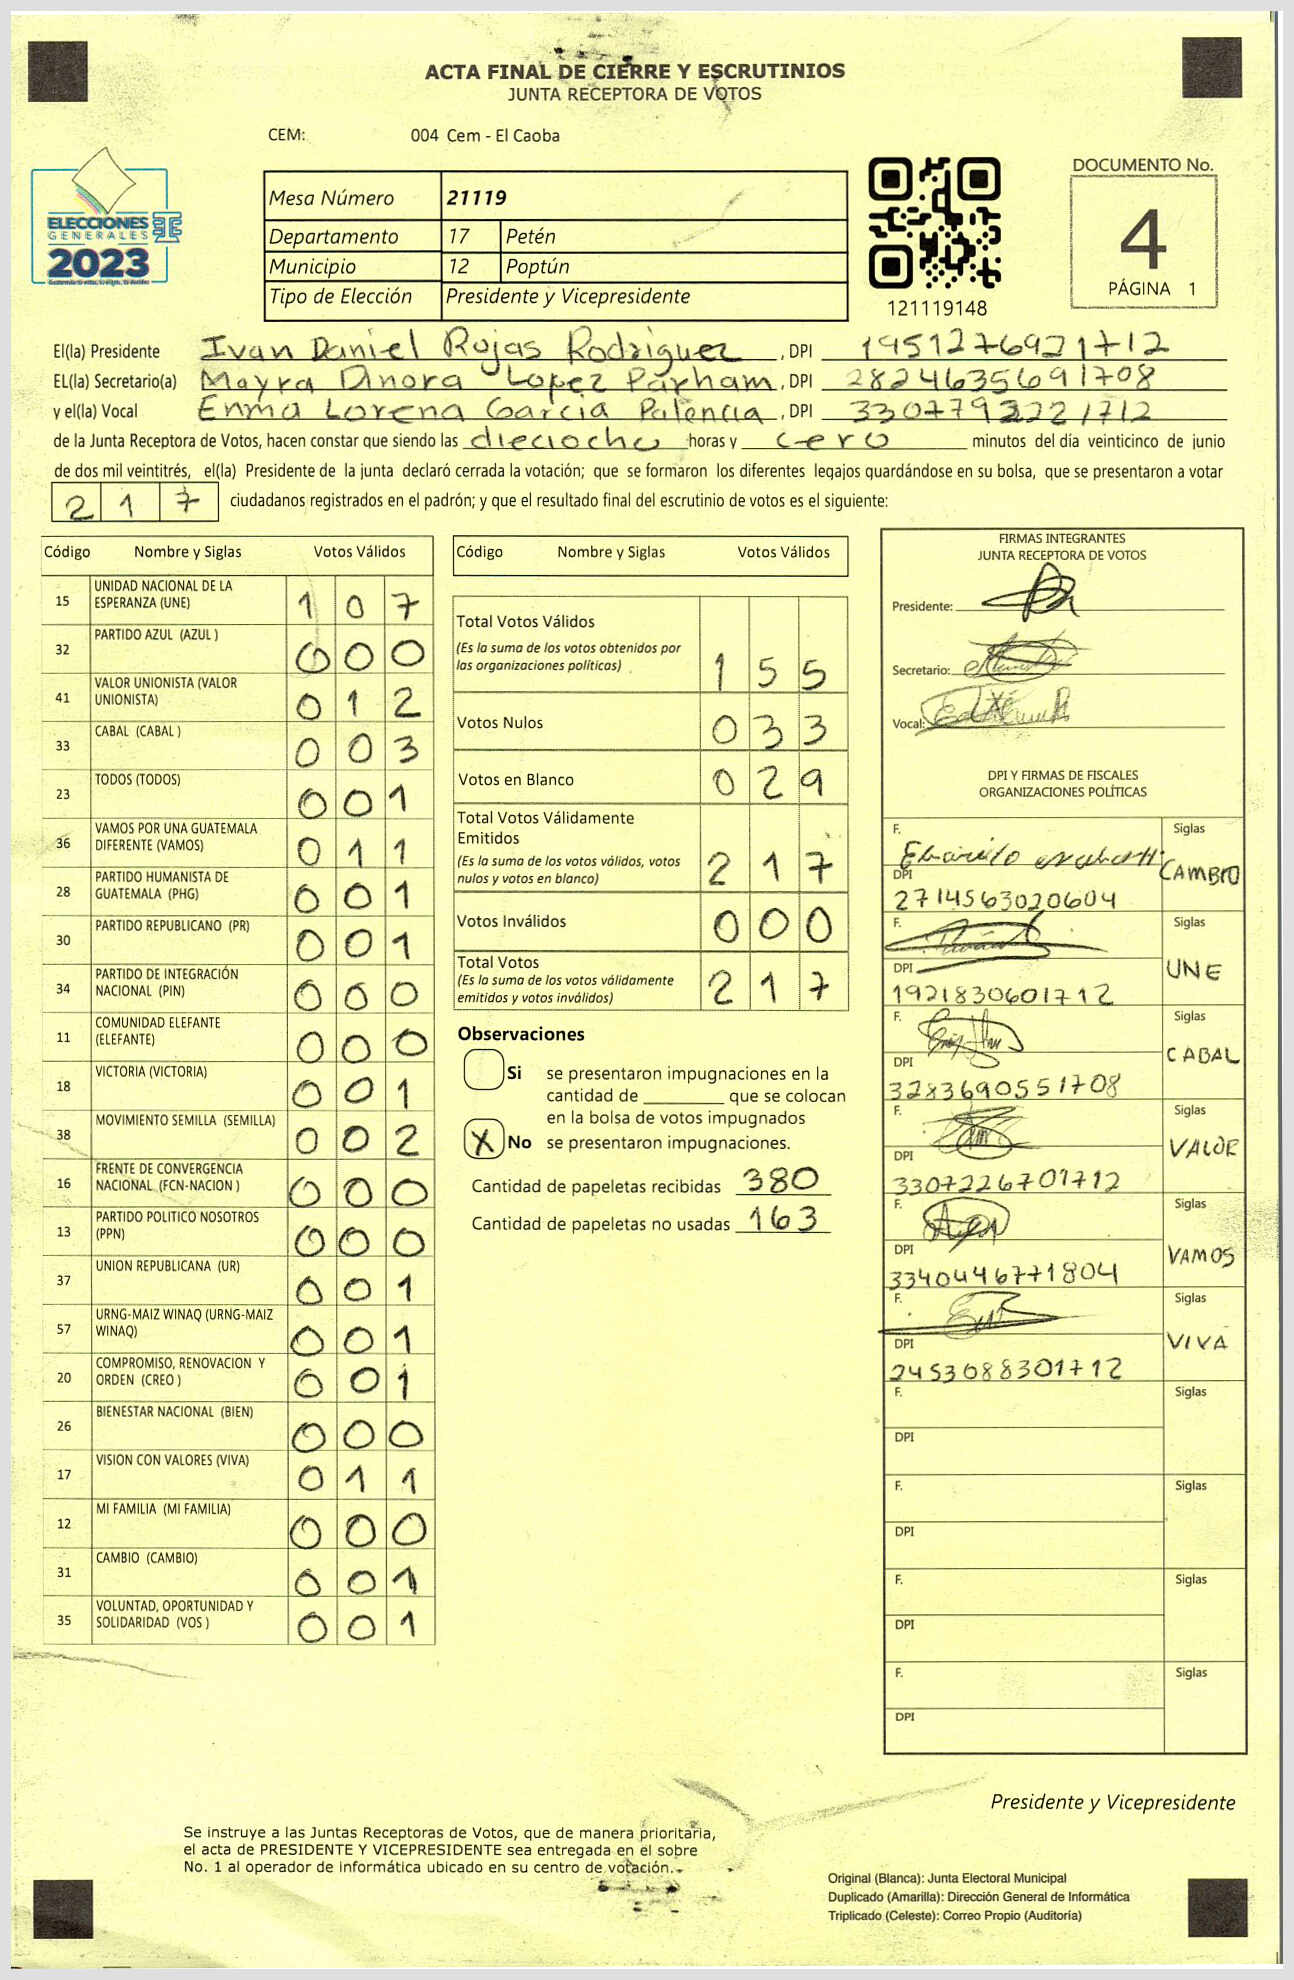 ACTA FINAL DE CIERRE Y ESCRUTINIOS
JUNTA RECEPTORA DE VOTOS
CEM: 004 Cem - El Caoba
ELECCIONES
GENERALES
2023
Mesa Número 21119
Departamento 17 Petén
Municipio 12 Poptún
Tipo de Elección Presidente y Vicepresidente
121119148
DOCUMENTO No.
4
PÁGINA 1
El(la) Presidente Ivan Daniel Rojas Rodriguez , DPI 1951276921712
EL(la) Secretario(a) Mayra Dinora Lopez Parham , DPI 2824635691708
y el(la) Vocal Enma Lorena Garcia Palencia , DPI 3307792221712
de la Junta Receptora de Votos, hacen constar que siendo las dieciocho horas y cero minutos del día veinticinco de junio
de dos mil veintitrés, el(la) Presidente de la junta declaró cerrada la votación; que se formaron los diferentes legajos guardándose en su bolsa, que se presentaron a votar
217 ciudadanos registrados en el padrón; y que el resultado final del escrutinio de votos es el siguiente:
Código Nombre y Siglas Votos Válidos
15 UNIDAD NACIONAL DE LA ESPERANZA (UNE) 107
32 PARTIDO AZUL (AZUL ) 000
41 VALOR UNIONISTA (VALOR UNIONISTA) 012
33 CABAL (CABAL ) 003
23 TODOS (TODOS) 001
36 VAMOS POR UNA GUATEMALA DIFERENTE (VAMOS) 011
28 PARTIDO HUMANISTA DE GUATEMALA (PHG) 001
30 PARTIDO REPUBLICANO (PR) 001
34 PARTIDO DE INTEGRACIÓN NACIONAL (PIN) 000
11 COMUNIDAD ELEFANTE (ELEFANTE) 000
18 VICTORIA (VICTORIA) 001
38 MOVIMIENTO SEMILLA (SEMILLA) 002
16 FRENTE DE CONVERGENCIA NACIONAL (FCN-NACION ) 000
13 PARTIDO POLITICO NOSOTROS (PPN) 000
37 UNION REPUBLICANA (UR) 001
57 URNG-MAIZ WINAQ (URNG-MAIZ WINAQ) 001
20 COMPROMISO, RENOVACION Y ORDEN (CREO ) 001
26 BIENESTAR NACIONAL (BIEN) 000
17 VISION CON VALORES (VIVA) 011
12 MI FAMILIA (MI FAMILIA) 000
31 CAMBIO (CAMBIO) 001
35 VOLUNTAD, OPORTUNIDAD Y SOLIDARIDAD (VOS ) 001
Código Nombre y Siglas Votos Válidos
Total Votos Válidos
(Es la suma de los votos obtenidos por
las organizaciones políticas) 155
Votos Nulos 033
Votos en Blanco 029
Total Votos Válidamente
Emitidos
(Es la suma de los votos válidos, votos
nulos y votos en blanco) 217
Votos Inválidos 000
Total Votos
(Es la suma de los votos válidamente
emitidos y votos inválidos) 217
Observaciones
Si se presentaron impugnaciones en la
cantidad de ________ que se colocan
en la bolsa de votos impugnados
X No se presentaron impugnaciones.
Cantidad de papeletas recibidas 380
Cantidad de papeletas no usadas 163
FIRMAS INTEGRANTES
JUNTA RECEPTORA DE VOTOS
Presidente:
Secretario:
Vocal:
DPI Y FIRMAS DE FISCALES
ORGANIZACIONES POLÍTICAS
F. Siglas
CAMBIO
DPI
2714563020604
F. Siglas
UNE
DPI
1921830601712
F. Siglas
CABAL
DPI
3283690551708
F. Siglas
VALOE
DPI
3307226701712
F. Siglas
VAMOS
DPI
3340446771804
F. Siglas
VIVA
DPI
2453088301712
F. Siglas
DPI
F. Siglas
DPI
F. Siglas
DPI
F. Siglas
DPI
Presidente y Vicepresidente
Se instruye a las Juntas Receptoras de Votos, que de manera prioritaria,
el acta de PRESIDENTE Y VICEPRESIDENTE sea entregada en el sobre
No. 1 al operador de informática ubicado en su centro de votación.
Original (Blanca): Junta Electoral Municipal
Duplicado (Amarilla): Dirección General de Informática
Triplicado (Celeste): Correo Propio (Auditoría)